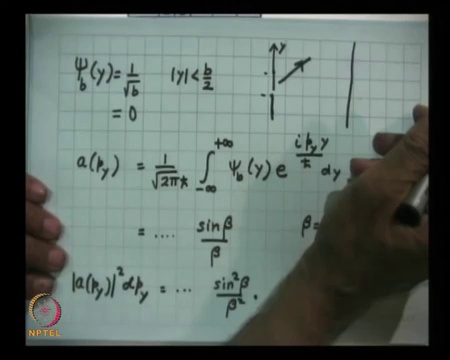 ψ_b(y) = 1/√b   |y| < b/2   y
= 0
a(p_y) = 1/√(2πħ) ∫_{-∞}^{+∞} ψ_b(y) e^{i p_y y/ħ} dy
= .... sin β/β   β =
|a(p_y)|² dp_y = ... sin²β/β² .
NPTEL